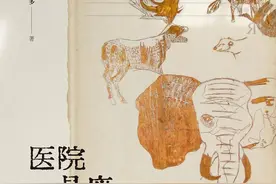 多 — 著
医院